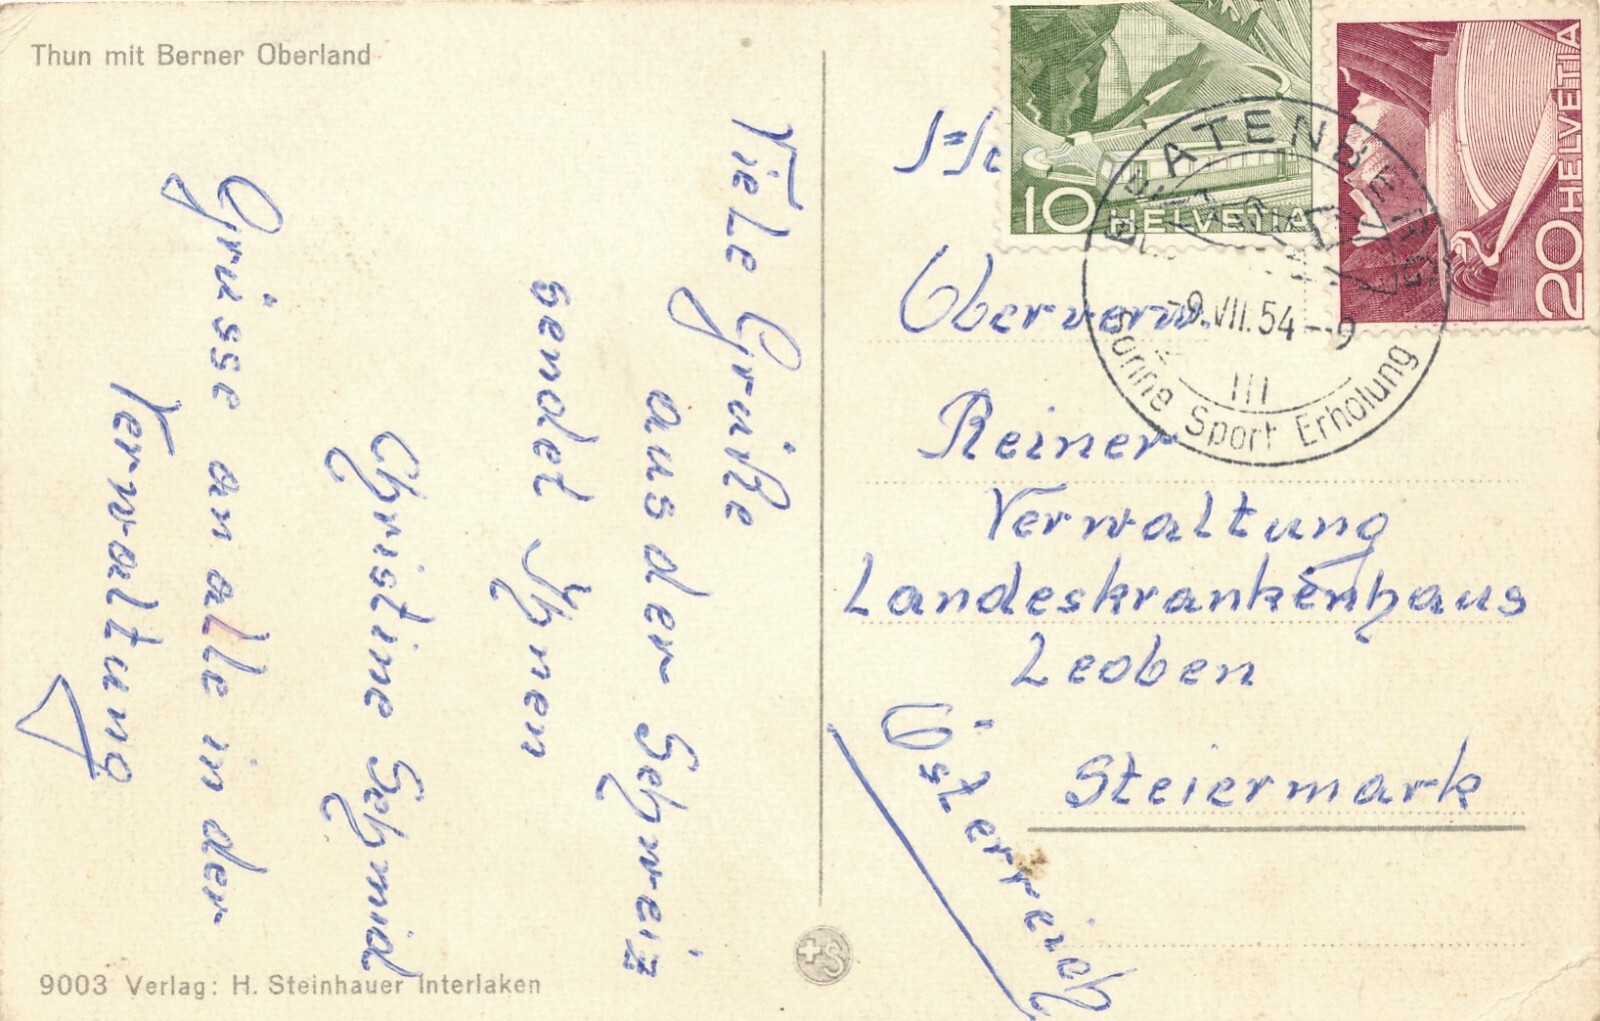 Thun mit Berner Oberland
Viele Grüße
aus der Schweiz
sendet Ihnen
Christine Schmid
Grüsse an alle in der
Verwaltung
9003 Verlag: H. Steinhauer Interlaken
+S
10 HELVETIA
20 HELVETIA
BEATENBERG
-9.VII.54--9
III
Sonne Sport Erholung
Oberverw.
Reiner
Verwaltung
Landeskrankenhaus
Leoben
Steiermark
Österreich